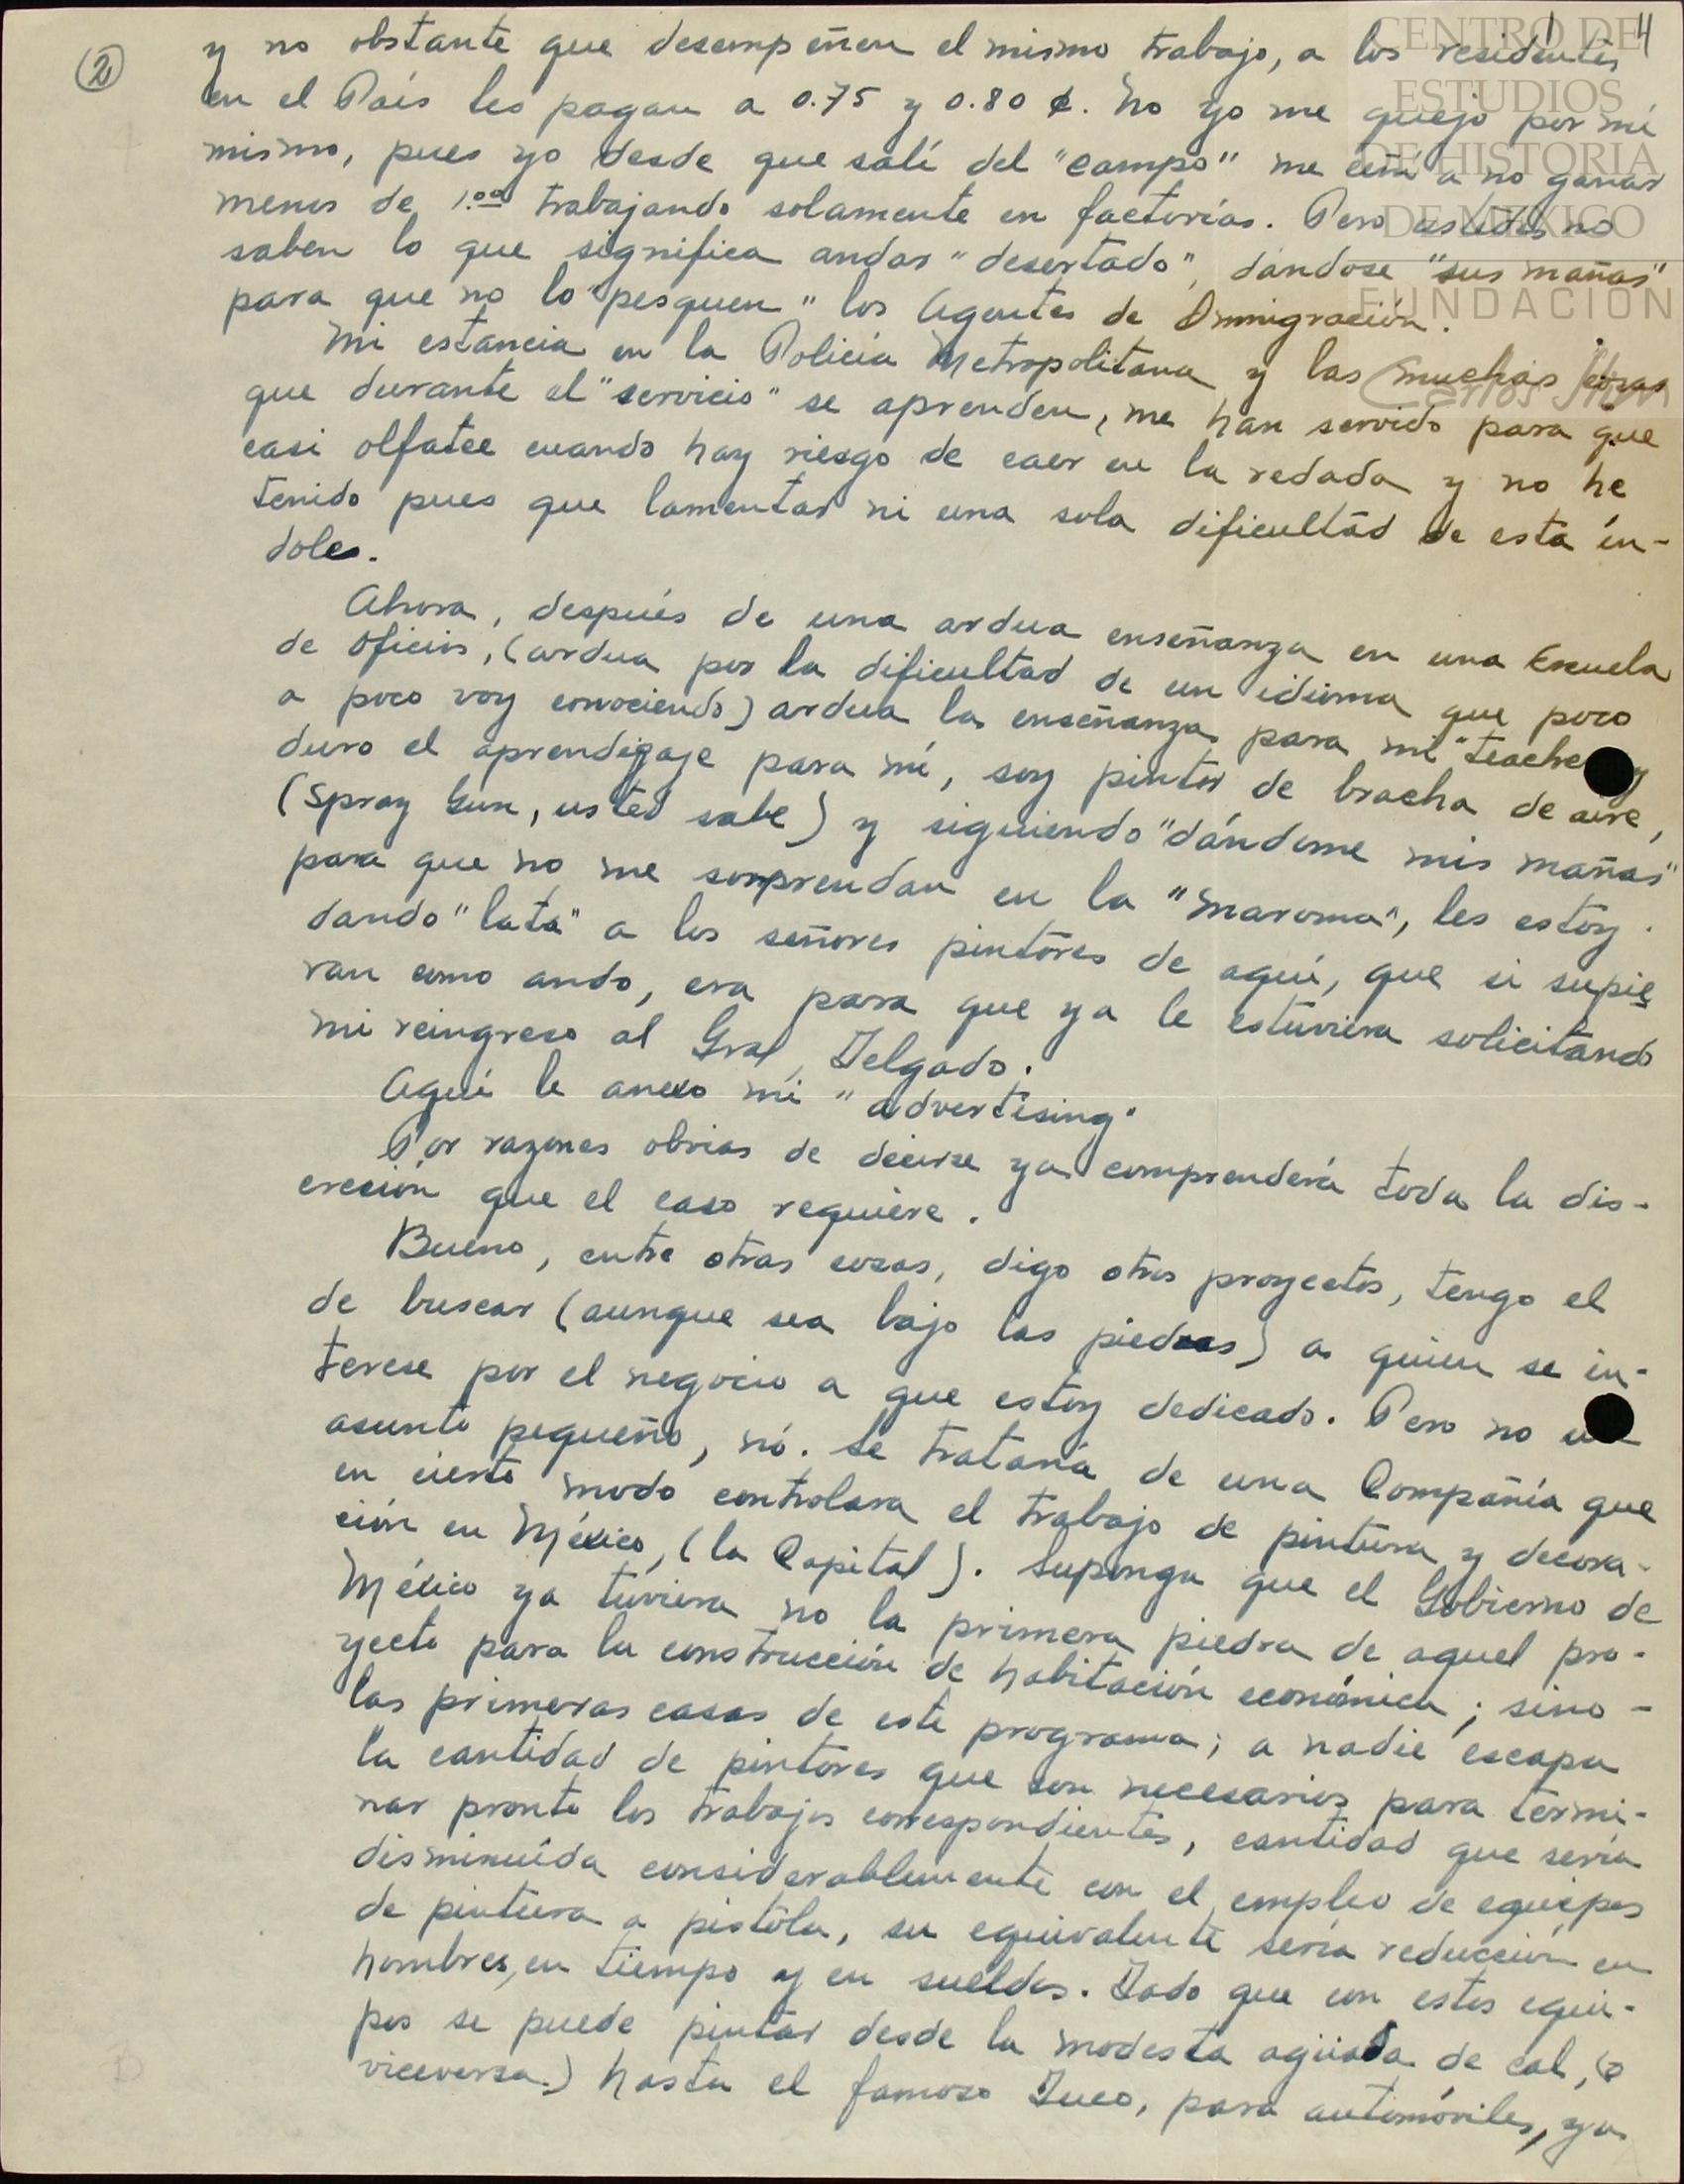 ② y no obstante que desempeñen el mismo trabajo, a los residentes
en el País les pagan a 0.75 y 0.80 ¢. No yo me quejo por mí
mismo, pues yo desde que salí del "campo" me ceñí a no ganar
menos de 1.00 trabajando solamente en factorías. Pero ustedes no
saben lo que significa andar "desertado", dándose "sus mañas"
para que no lo "pesquen" los Agentes de Inmigración.
Mi estancia en la Policía Metropolitana y las muchas cosas
que durante el "servicio" se aprenden, me han servido para que
casi olfatee cuando hay riesgo de caer en la redada y no he
tenido pues que lamentar ni una sola dificultad de esta ín-
doles.
Ahora, después de una ardua enseñanza en una Escuela
de Oficios, (ardua por la dificultad de un idioma que poco
a poco voy conociendo) ardua la enseñanza para mi "teacher" y
duro el aprendizaje para mí, soy pintor de brocha de aire,
(Spray Gun, usted sabe) y siguiendo "dándome mis mañas"
para que no me sorprendan en la "maroma", les estoy
dando "lata" a los señores pintores de aquí, que si supie
ran como ando, era para que ya le estuviera solicitando
mi reingreso al Gral. Delgado.
Aquí le anexo mi "advertising"
Por razones obvias de decirse ya comprenderá toda la dis-
creción que el caso requiere.
Bueno, entre otras cosas, digo otros proyectos, tengo el
de buscar (aunque sea bajo las piedras) a quien se in-
terese por el negocio a que estoy dedicado. Pero no un
asunto pequeño, nó. Se trataría de una Compañía que
en cierto modo controlara el trabajo de pintura y decora-
ción en México, (la Capital). Suponga que el Gobierno de
México ya tuviera no la primera piedra de aquel pro-
yecto para la construcción de habitación económica; sino -
las primeras casas de este programa; a nadie escapa
la cantidad de pintores que son necesarios para termi-
nar pronto los trabajos correspondientes, cantidad que sería
disminuída considerablemente con el empleo de equipos
de pintura a pistola, su equivalente sería reducción en
hombres, en tiempo y en sueldos. Dado que con estos equi-
pos se puede pintar desde la modesta aguada de cal, (o
viceversa.) hasta el famoso Duco, para automóviles, ya
CENTRO DE
ESTUDIOS
DE HISTORIA
DE MEXICO
FUNDACIÓN
Carlos Slim